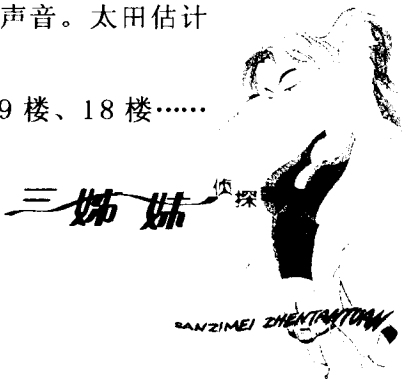 声音。太田估计
9楼、18楼……
三姊妹侦探
SANZIMEI ZHENTANTUAN